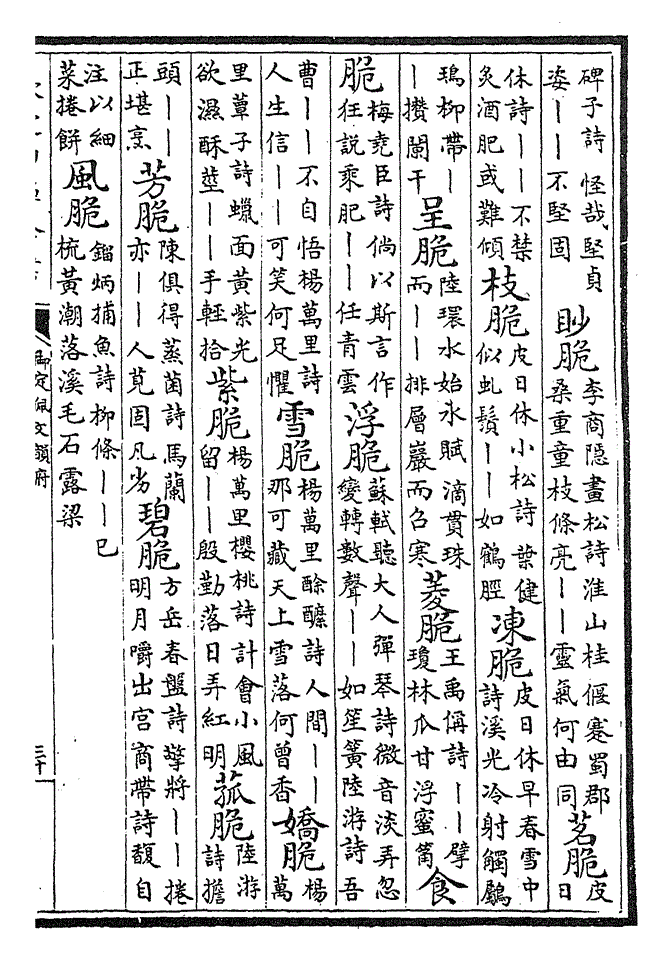 碑子詩怪哉堅貞
姿——不堅固
眇脆
李商隱畫松詩淮山桂偃蹇蜀郡
桑重童枝條亮——靈氣何由同
茗脆
皮
日
休詩——不禁
炙酒肥或難傾
枝脆
皮日休小松詩葉健
似虬鬚——如鶴脛
凍脆
皮日休早春雪中
詩溪光冷射觸鸀
鳿柳帶—
—攢闌干
呈脆
陸環水始氷賦滴貫珠
而——排層巖而召寒
菱脆
王禹偁詩——擘
瓊林瓜甘浮蜜筩
食
脆
梅堯臣詩倘以斯言作
狂說乘肥——任青雲
浮脆
蘇軾聽大人彈琴詩微音淡弄忽
變轉數聲——如笙簧陸游詩吾
曹——不自悟楊萬里詩
人生信——可笑何足懼
雪脆
楊萬里酴醿詩人間——
那可藏天上雪落何曾香
嬌脆
楊
萬
里蕈子詩蠟面黃紫光
欲濕酥莖——手輕拾
紫脆
楊萬里櫻桃詩計會小風
留——殷勤落日弄紅明
菰脆
陸游
詩擔
頭——
正堪烹
芳脆
陳俱得蒸菌詩馬蘭
亦——人莧固凡劣
碧脆
方岳春盤詩擎將——捲
明月嚼出宮商帶詩馥自
注以細
菜捲餅
風脆
鎦炳捕魚詩柳條——已
梳黃潮落溪毛石露梁
御定佩文韻府